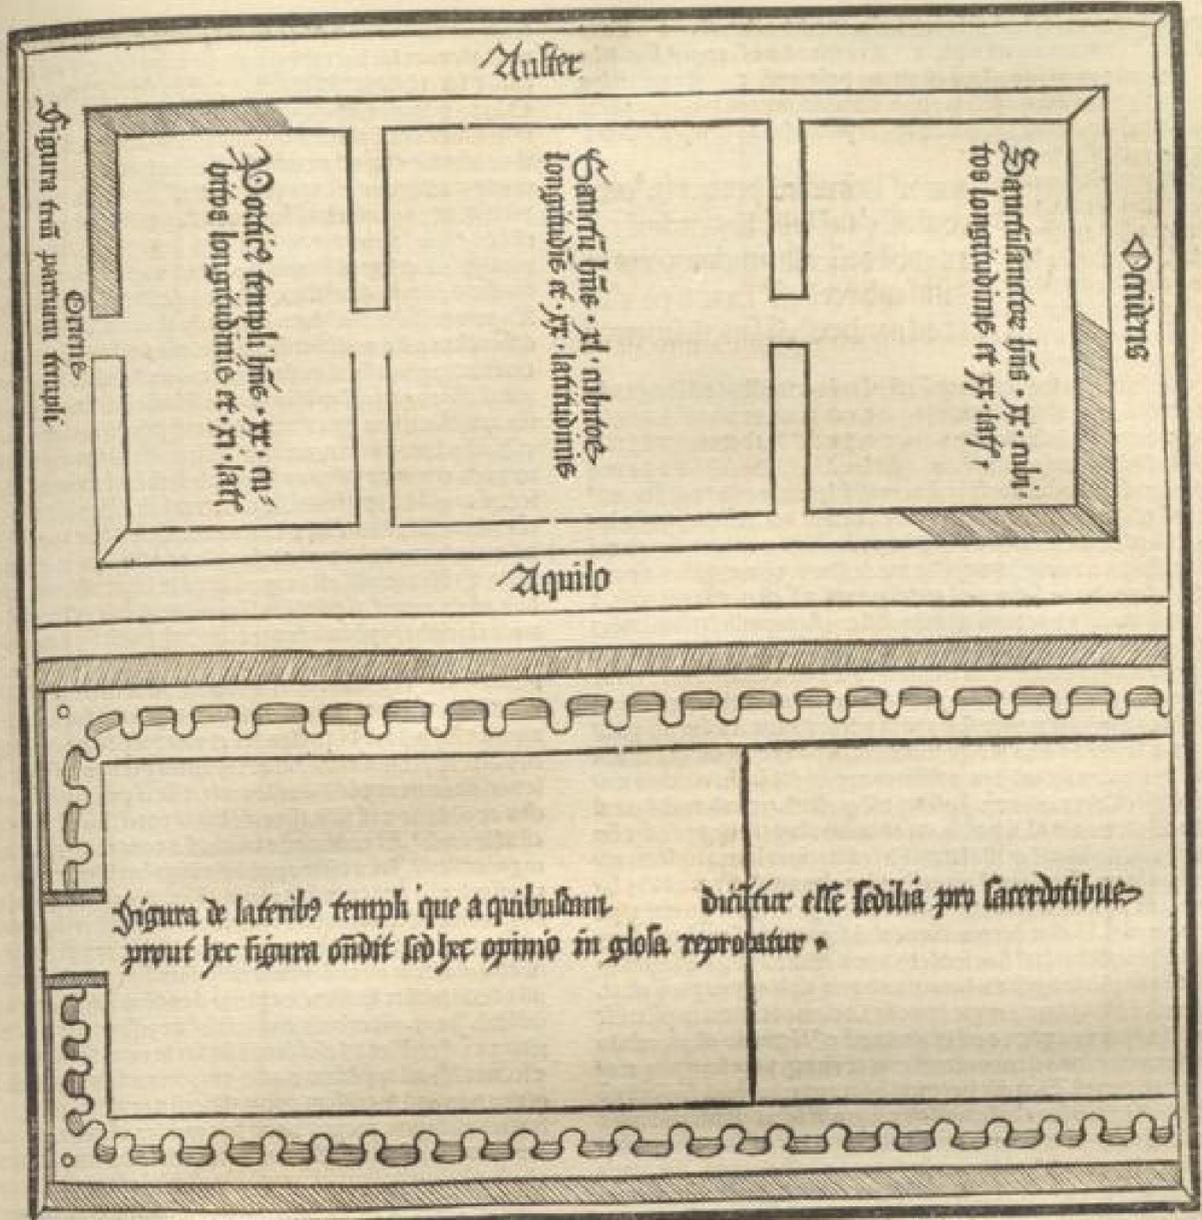 Auster
Figura triū partium templi
Oriens
Porticꝰ templi hn̄s · xx · cu-
bitos longitudinis et · xi · lat̄
Sanctū hn̄s · xl · cubitos
longitudīs et xx · latitudinis
Sanctūsanctoꝝ hn̄s · xx · cubi-
tos longitudinis et xx · lat̄ ·
Occidens
Aquilo
Figura de lateribꝰ templi que a quibusdam dicūtur esse sedilia pro sacerdotibus
prout hec figura oñdit sed hec opinio in glosa reprobatur ·